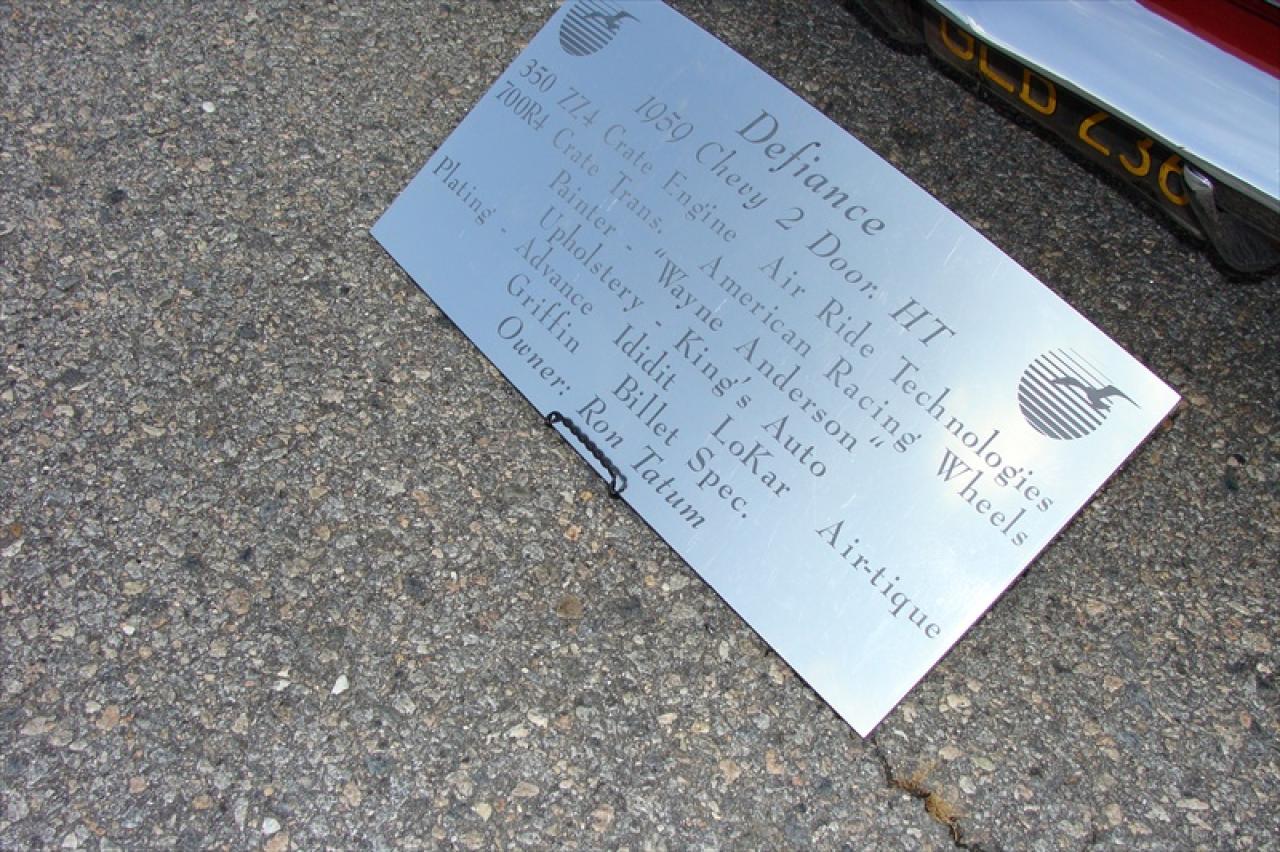 Defiance
1959 Chevy 2 Door. HT
350 ZZ4 Crate Engine Air Ride Technologies
700R4 Crate Trans. American Racing Wheels
Painter - “Wayne Anderson“
Upholstery - King's Auto
Plating - Advance Ididit LoKar Air-tique
Griffin Billet Spec.
Owner: Ron Tatum
236